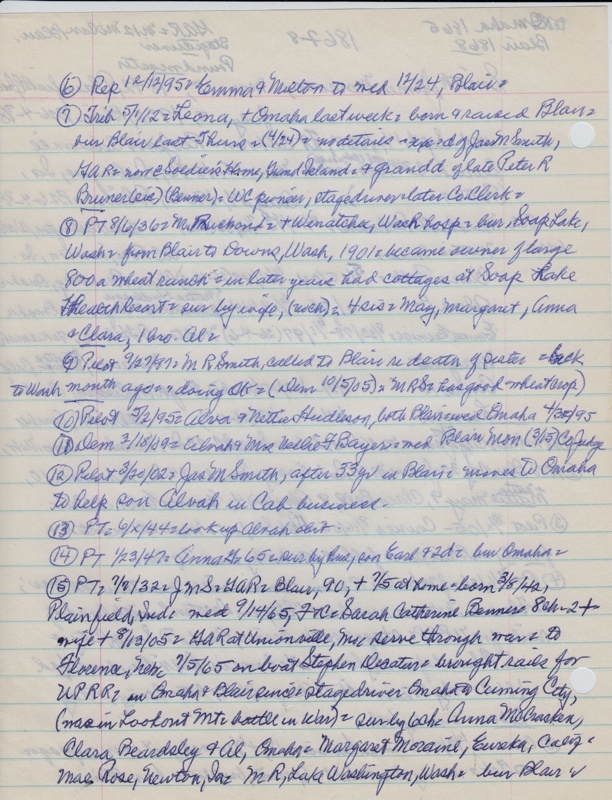 ⑥ Rep 12/12/95 = Emma & Milton to med 12/24, Blair =
⑦ Trib 5/1/12 = Leona, + Omaha last week = born & raised Blair =
bur Blair last Thurs = (4/24) = no details = of Jas M Smith,
GAR = now Soldiers Home, Grand Island = & grandd of late Peter R
Bruner (sic) (Benner) = WC pioneer, stage driver = later Co. Clerk =
⑧ PT 8/6/36 = M. Richmond = + Wenatchee, Wash hosp = bur, Soap Lake,
Wash = from Blair to Downs, Wash, 1901 = became owner of large
800 a wheat ranch = in later years had cottages at Soap Lake
Health Resort = sur by wife, = 4 sis = May, Margaret, Anna
& Clara, 1 bro. Al =
⑨ Pilot 9/27/97 = M R Smith, called to Blair re death of sister = back
to Wash month ago = doing OK = (Dem 10/5/05) = MRS = has good wheat crop)
⑩ Pilot 5/2/95 = Alva & Nettie Hudleson, both Blair = wed Omaha 4/30/95
⑪ Dem 3/18/09 = Alvah & Mrs Nellie F Bayer = med Blair Mon (3/15) Co Judge
⑫ Pilot 3/20/02 = Jas M Smith, after 33 yr in Blair = moves to Omaha
to help son Alvah in Cab business.
⑬ PT = 6/x/44 = look up Alvah obit
⑭ PT 1/23/47 = Anna 65 = sur by hus, son Earl & 2d = bur Omaha =
⑮ PT = 7/7/32 = J M S = GAR = Blair, 90, + 7/5 at home = born 3/8/42,
Plainfield, Ind = med 9/14/65, = Sarah Catherine Benner = 8 ch = 2 +
wife + 8/13/05 = GAR at Unionville, Mo = serve through war = to
Florence, Neb 7/5/65 on boat Stephen Decatur = brought rails for
UPRR = in Omaha & Blair since = stage driver Omaha to Cuming City,
(was in Lookout Mt = battle in War) = sur by 6 ch = Anna McCracken,
Clara, Beardsley & Al, Omaha = Margaret Moraine, Eureka, Calif =
Mae Rose, Newton, Ia = M R, Washington, Wash = bur Blair =